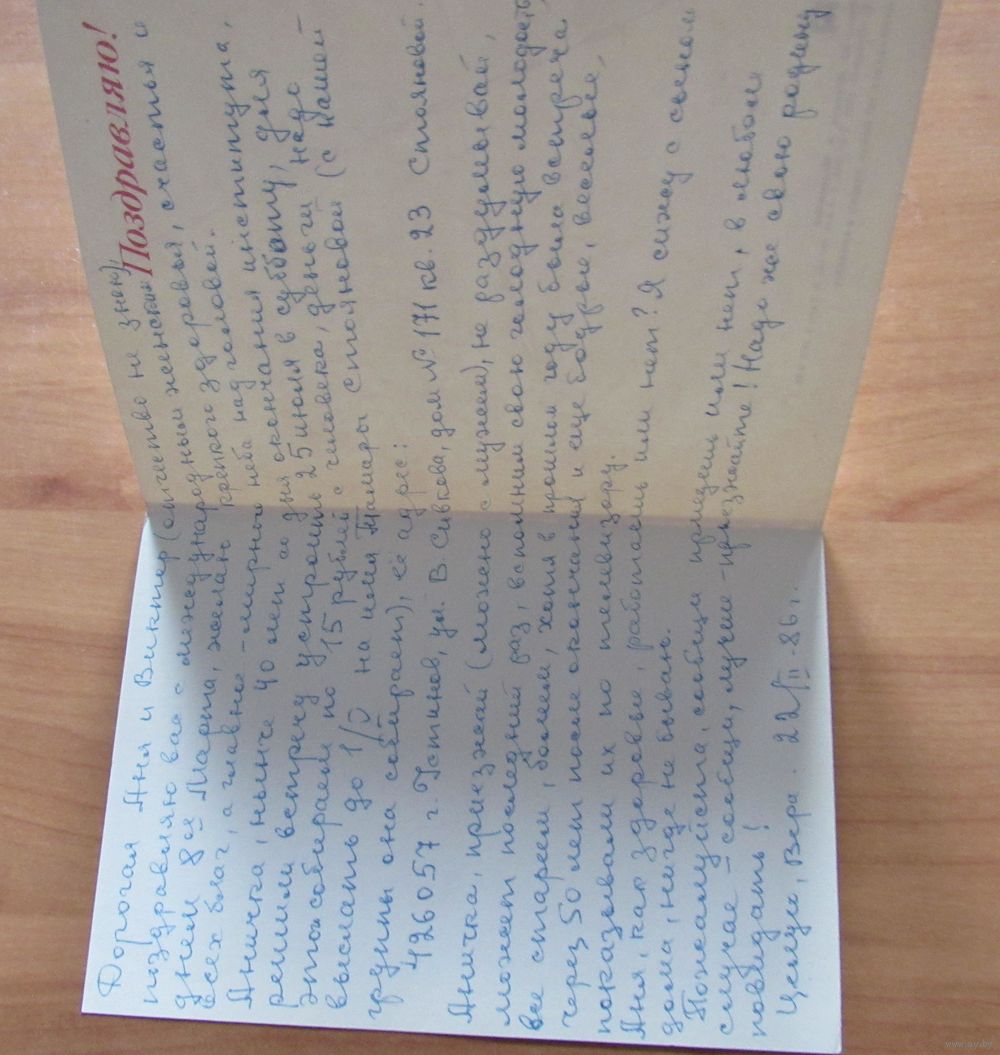 Поздравляю!
Дорогая Аня и Виктор (отчество не знаю),
поздравляю вас с международным женским
днем 8ое Марта, желаю крепкого здоровья, счастья и
всех благ, а главное - мирного неба над головой.
Аничка, нынче 40 лет со дня окончания института,
решили встречу устроить 25 июля в субботу, для
этого собираем по 15 рублей с человека, деньги надо
выслать до 1/V на имя Тамары Стояновой (с нашей
группы она собирает), её адрес:
426057 г. Устинов, ул. В. Сивкова, дом № 171 кв. 23 Стояновой.
Аничка, приезжай (можно с мужем), не раздумывай,
может последний раз, вспомним свою голодную молодость,
все стареем, болеем, хотя в прошлом году была встреча
через 50 лет после окончания и еще бодрые, веселые,
показывали их по телевизору.
Аня, как здоровье, работаешь или нет? Я сижу с сыном
дома, нигде не бываю.
Пожалуйста, сообщи приедешь или нет, в любом
случае - сообщи, лучше - приезжайте! Надо же свою родину
повидать!
Целую, Вера. 22/II-86 г.
www.ay.by